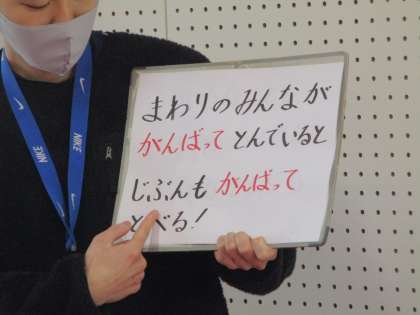 まわりのみんなが
がんばって とんでいると
じぶんも がんばって
とべる!
NIKE
NIKE
NIKE